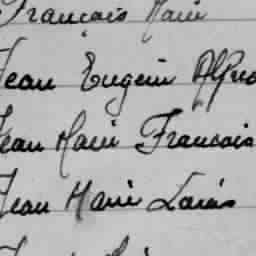 François Marie
Jean Eugène Alfred
Jean Marie Francois
Jean Marie Louis